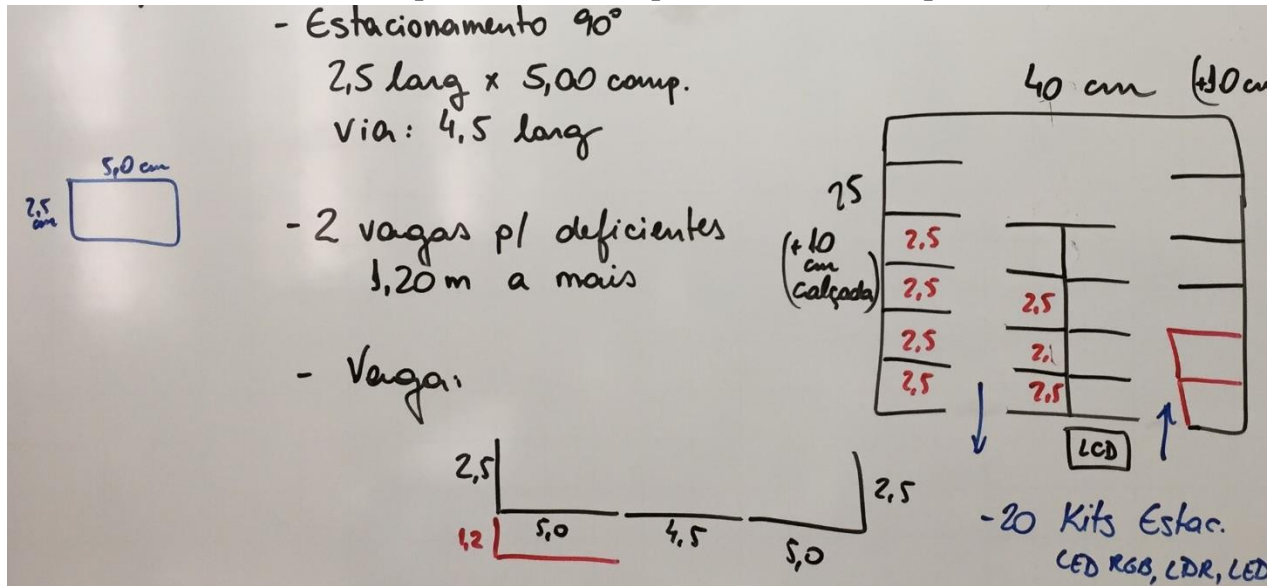 - Estacionamento 90°
2,5 larg x 5,00 comp.
via: 4,5 larg
5,0 cm
2,5 cm
- 2 vagas p/ deficientes
1,20 m a mais
- Vaga:
2,5
1,2
5,0
4,5
5,0
2,5
40 cm (+10 cm
25
(+10 cm calçada)
2,5
2,5
2,5
2,5
2,5
2,
2,5
LCD
- 20 Kits Estac.
LED RGB, LDR, LED